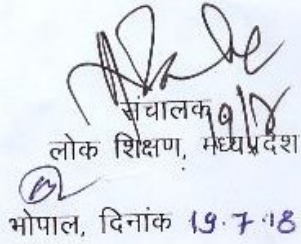 संचालक
लोक शिक्षण, मध्यप्रदेश
भोपाल, दिनांक 19.7.18